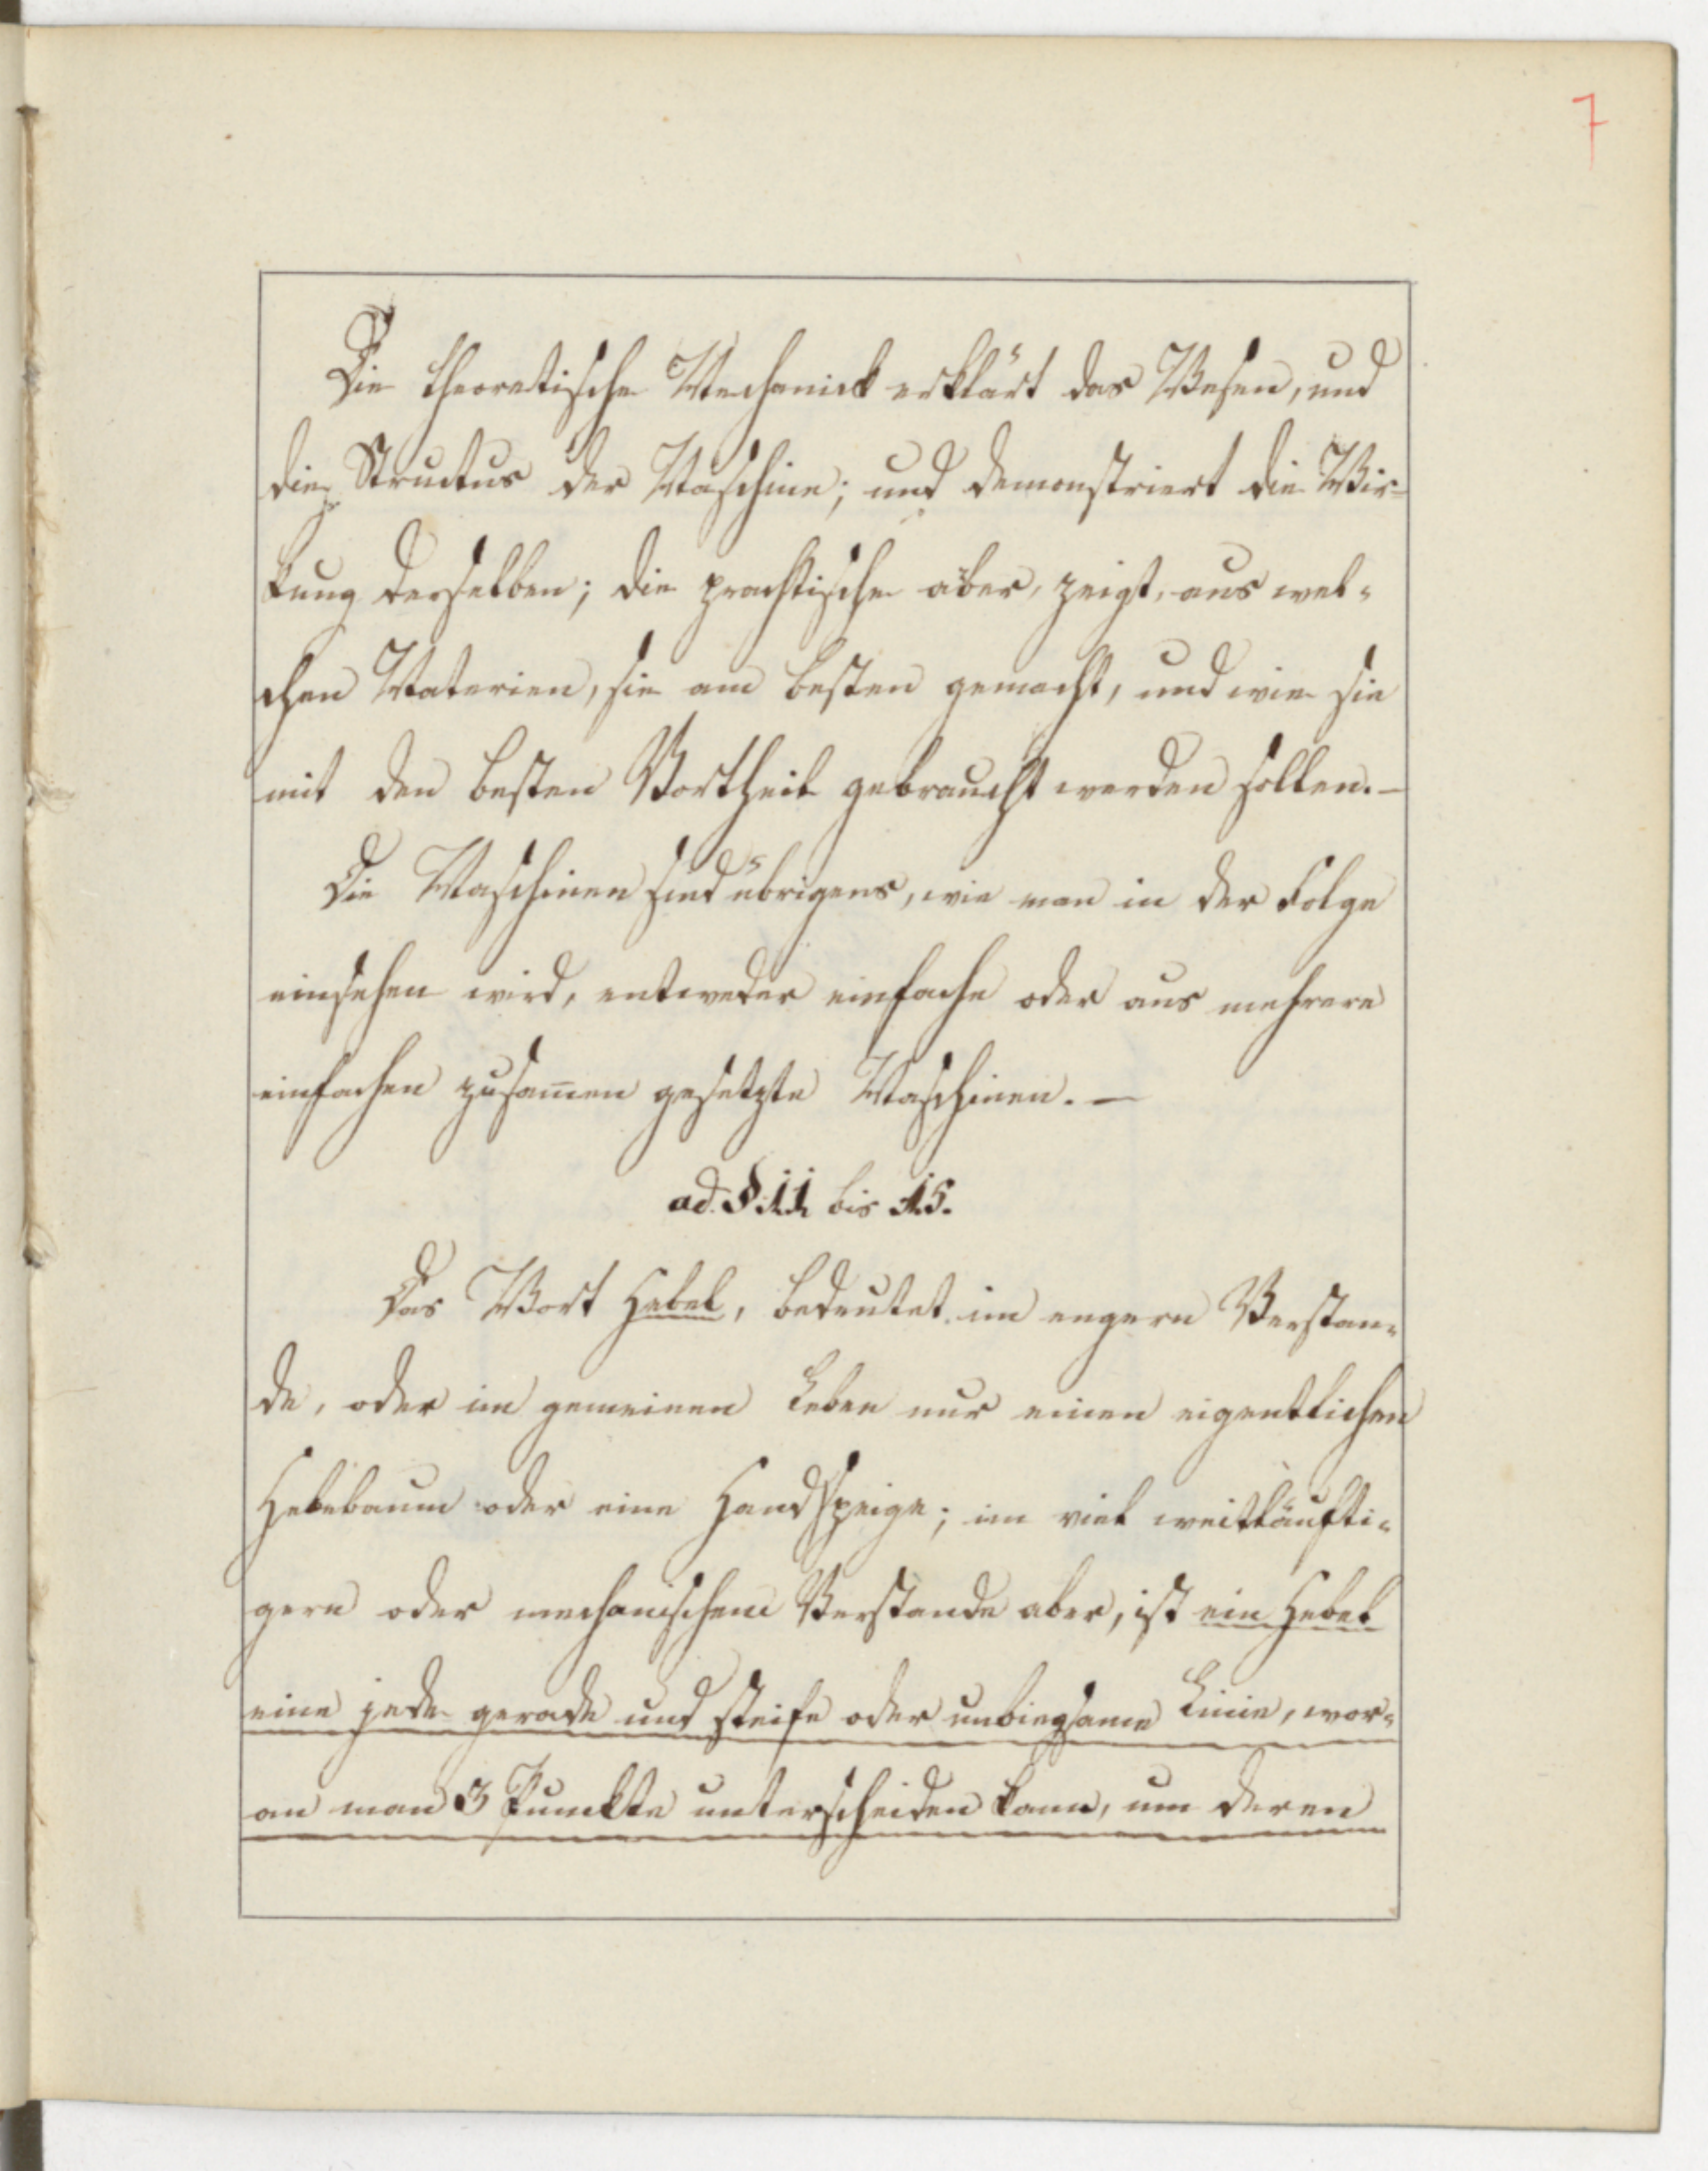 7
Die theoretische Mechanick erklärt das Wesen, und
die Structur der Maschine; und demonstriert die Wir-
kung derselben; die practische aber, zeigt, aus wel-
chen Materien, sie am besten gemacht, und wie sie
mit den besten Vortheil gebraucht werden sollen. –
Die Maschinen sind übrigens, wie man in der Folge
einsehen wird, entweder einfache oder aus mehrere
einfachen zusam̅en gesetzte Maschinen. –
ad. § 11 bis 15.
Das Wort Hebel, bedeutet im engern Verstan-
de, oder im gemeinen Leben nur einen eigentlichen
Hebebaum oder eine Handspeige; im viel weitläufti-
gern oder mechanischem Verstande aber, ist ein Hebel
eine jede gerade und steife oder unbiegsame Linie, wor-
an man 3 Punckte unterscheiden kann, um deren